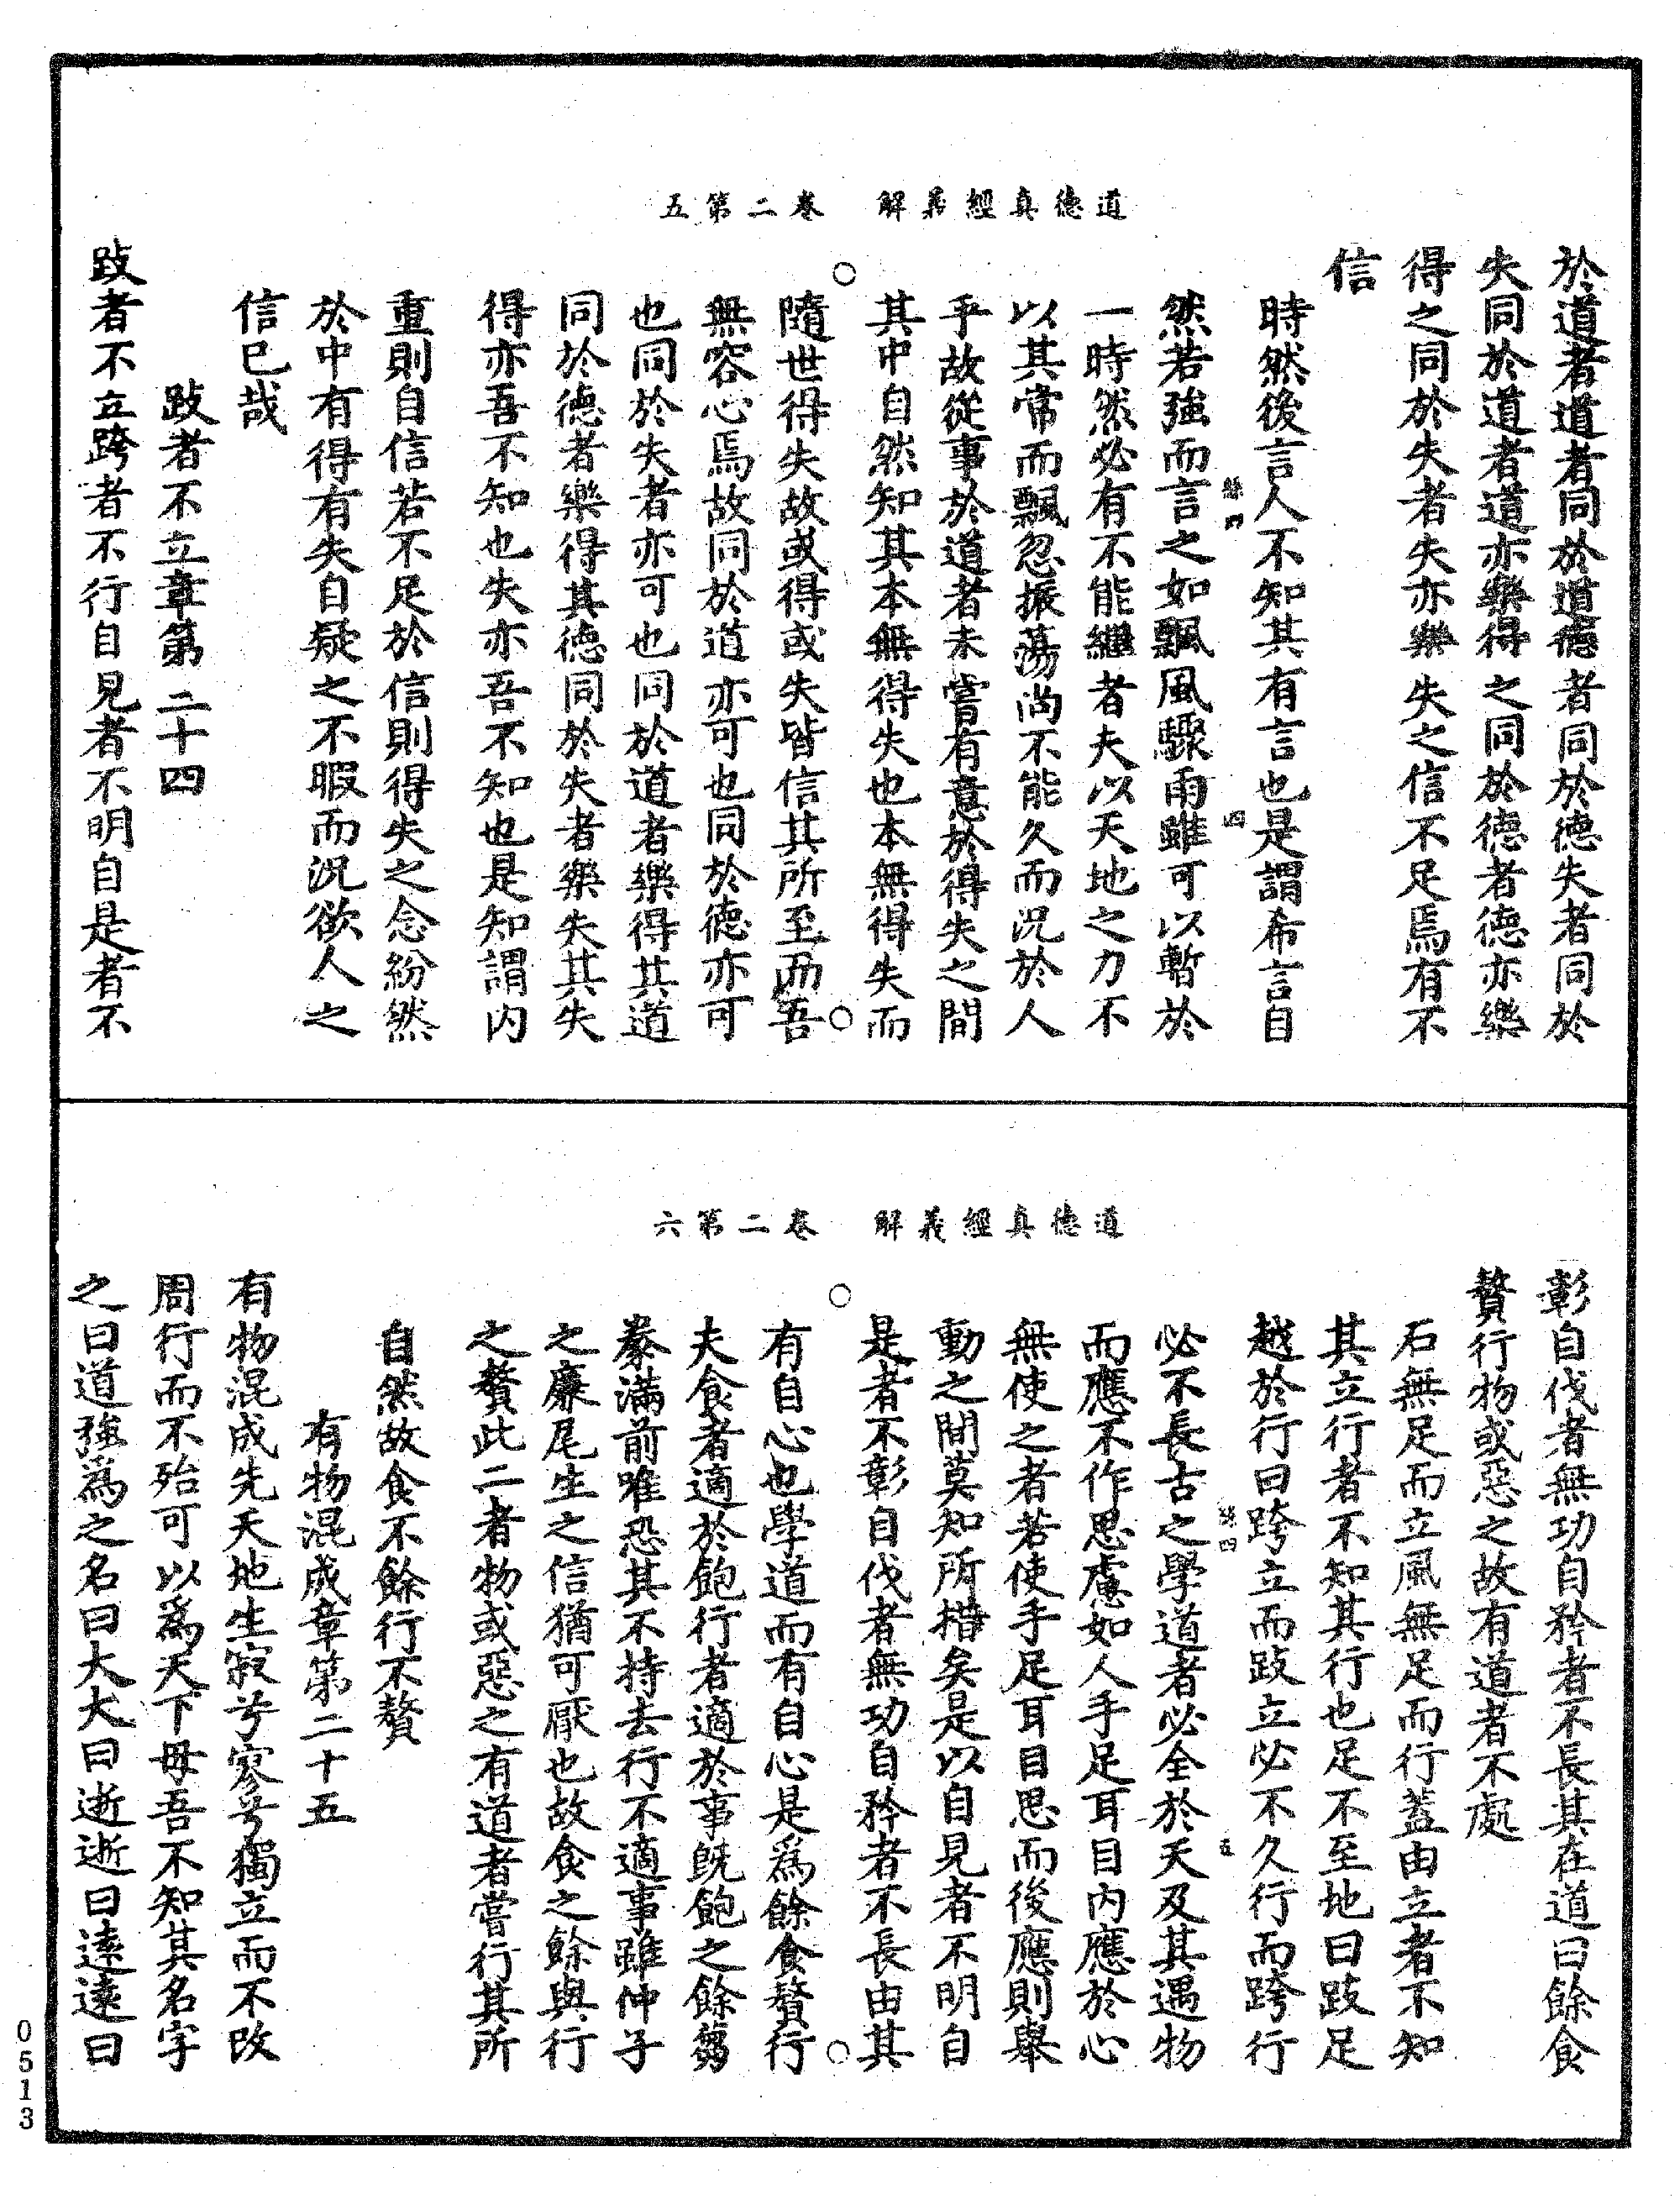 道德真經義解　卷二第五
於道者道者同於道德者同於德失者同於
失同於道者道亦樂得之同於德者德亦樂
得之同於失者失亦樂失之信不足焉有不
信
時然後言人不知其有言也是謂希言自
然若強而言之如飄風驟雨雖可以暫於
一時然必有不能繼者夫以天地之力不
以其常而飄忽振蕩尚不能久而況於人
乎故從事於道者未嘗有意於得失之間
其中自然知其本無得失也本無得失而
隨世得失故或得或失皆信其所至而吾
無容心焉故同於道亦可也同於德亦可
也同於失者亦可也同於道者樂得其道
同於德者樂得其德同於失者樂失其失
得亦吾不知也失亦吾不知也是知謂內
重則自信若不足於信則得失之念紛然
於中有得有失自疑之不暇而況欲人之
信已哉
跂者不立章第二十四
跂者不立跨者不行自見者不明自是者不
道德真經義解　卷二第六
彰自伐者無功自矜者不長其在道曰餘食
贅行物或惡之故有道者不處
石無足而立風無足而行蓋由立者不知
其立行者不知其行也足不至地曰跂足
越於行曰跨立而跂立必不久行而跨行
必不長古之學道者必全於天及其遇物
而應不作思慮如人手足耳目內應於心
無使之者若使手足耳目思而後應則舉
動之間莫知所措矣是以自見者不明自
是者不彰自伐者無功自矜者不長由其
有自心也學道而有自心是為餘食贅行
夫食者適於飽行者適於事既飽之餘芻
豢滿前唯恐其不持去行不適事雖仲子
之廉尾生之信猶可厭也故食之餘與行
之贅此二者物或惡之有道者嘗行其所
自然故食不餘行不贅
有物混成章第二十五
有物混成先天地生寂兮寥兮獨立而不改
周行而不殆可以為天下母吾不知其名字
之曰道強為之名曰大大曰逝逝曰遠遠曰
0513